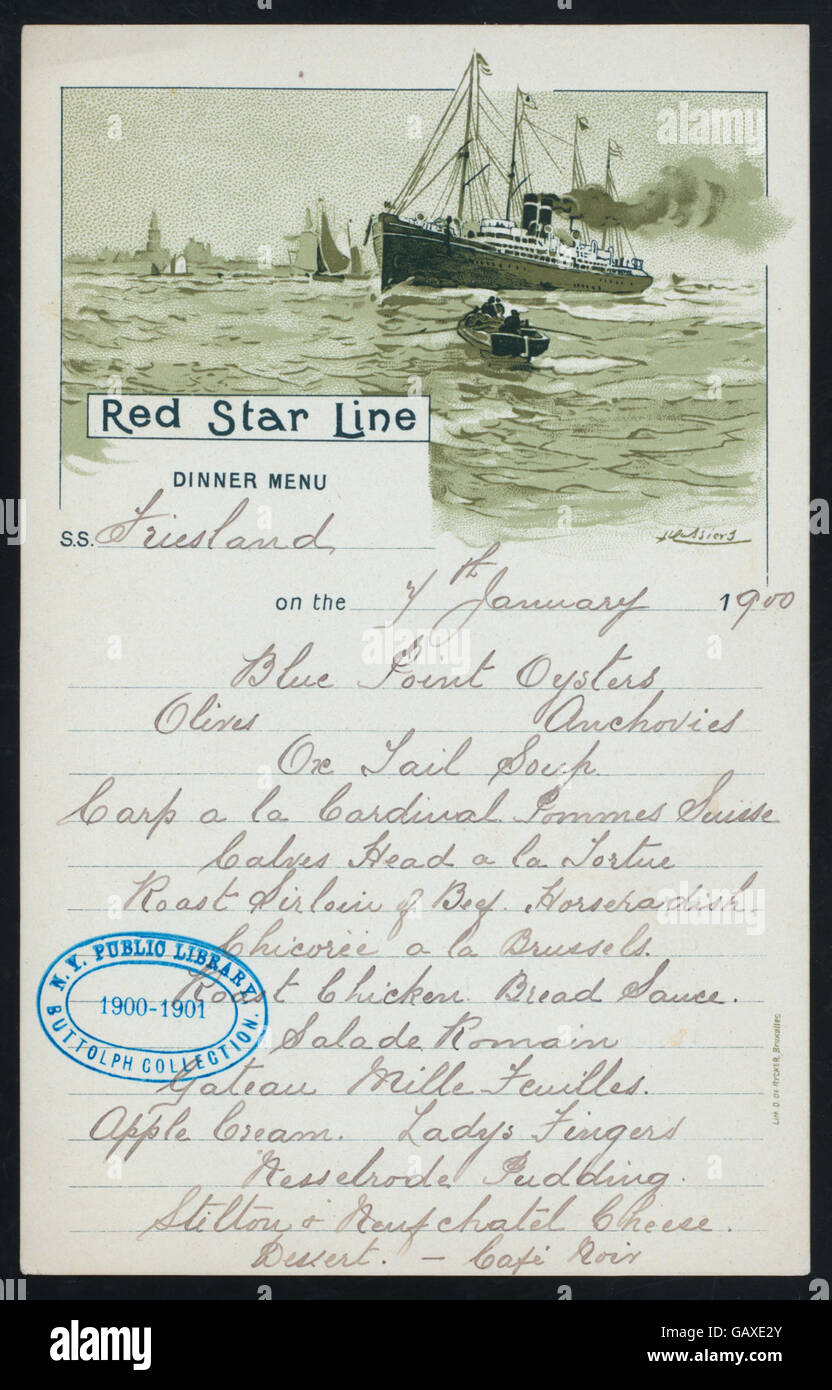 Red Star Line
DINNER MENU
S.S. Friesland
H. Cassiers
on the 7th January 1900
Blue Point Oysters
Olives Anchovies
Ox Tail Soup
Carp a la Cardinal Pommes Suisse
Calves Head a la Tortue
Roast Sirloin of Beef. Horseradish.
Chicorée a la Brussels.
Roast Chicken Bread Sauce.
Salade Romain
Gateau Mille Feuilles.
Apple Cream. Ladys Fingers
Nesselrode Pudding.
Stilton & Neufchatel Cheese.
Dessert. – Café Noir
N.Y. PUBLIC LIBRARY
1900-1901
BUTTOLPH COLLECTION.
LITH. O. DE RYCKER, Bruxelles
alamy
a
alamy stock photo
GAXE2Y
www.alamy.com